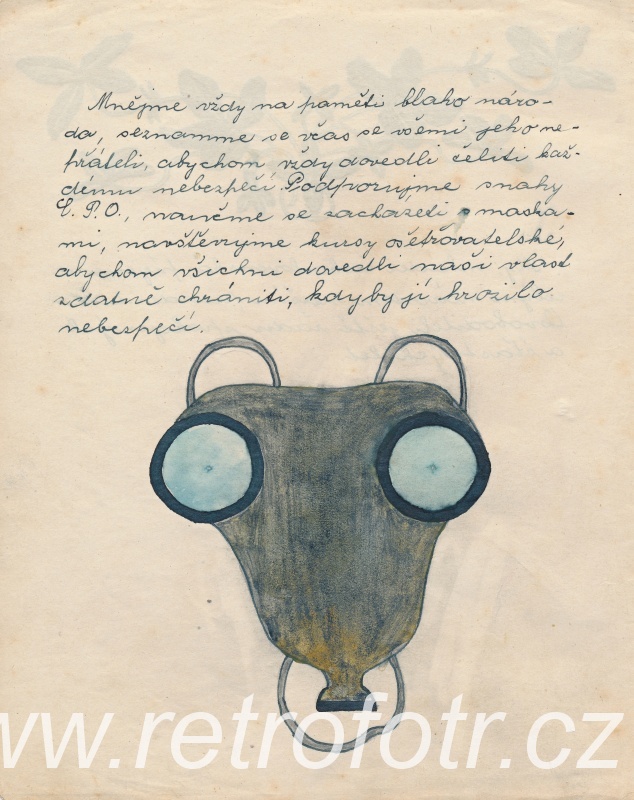 Mnějme vždy na paměti blaho náro-
da, seznamme se včas se všemi jeho ne-
přáteli, abychom vždy dovedli čeliti kaž-
dému nebezpečí. Podporujme snahy
C. P. O., naučme se zacházeti s maska-
mi, navštěvujme kursy ošetřovatelské,
abychom všichni dovedli naši vlast
zdatně chrániti, kdyby jí hrozilo
nebezpečí.
www.retrofotr.cz